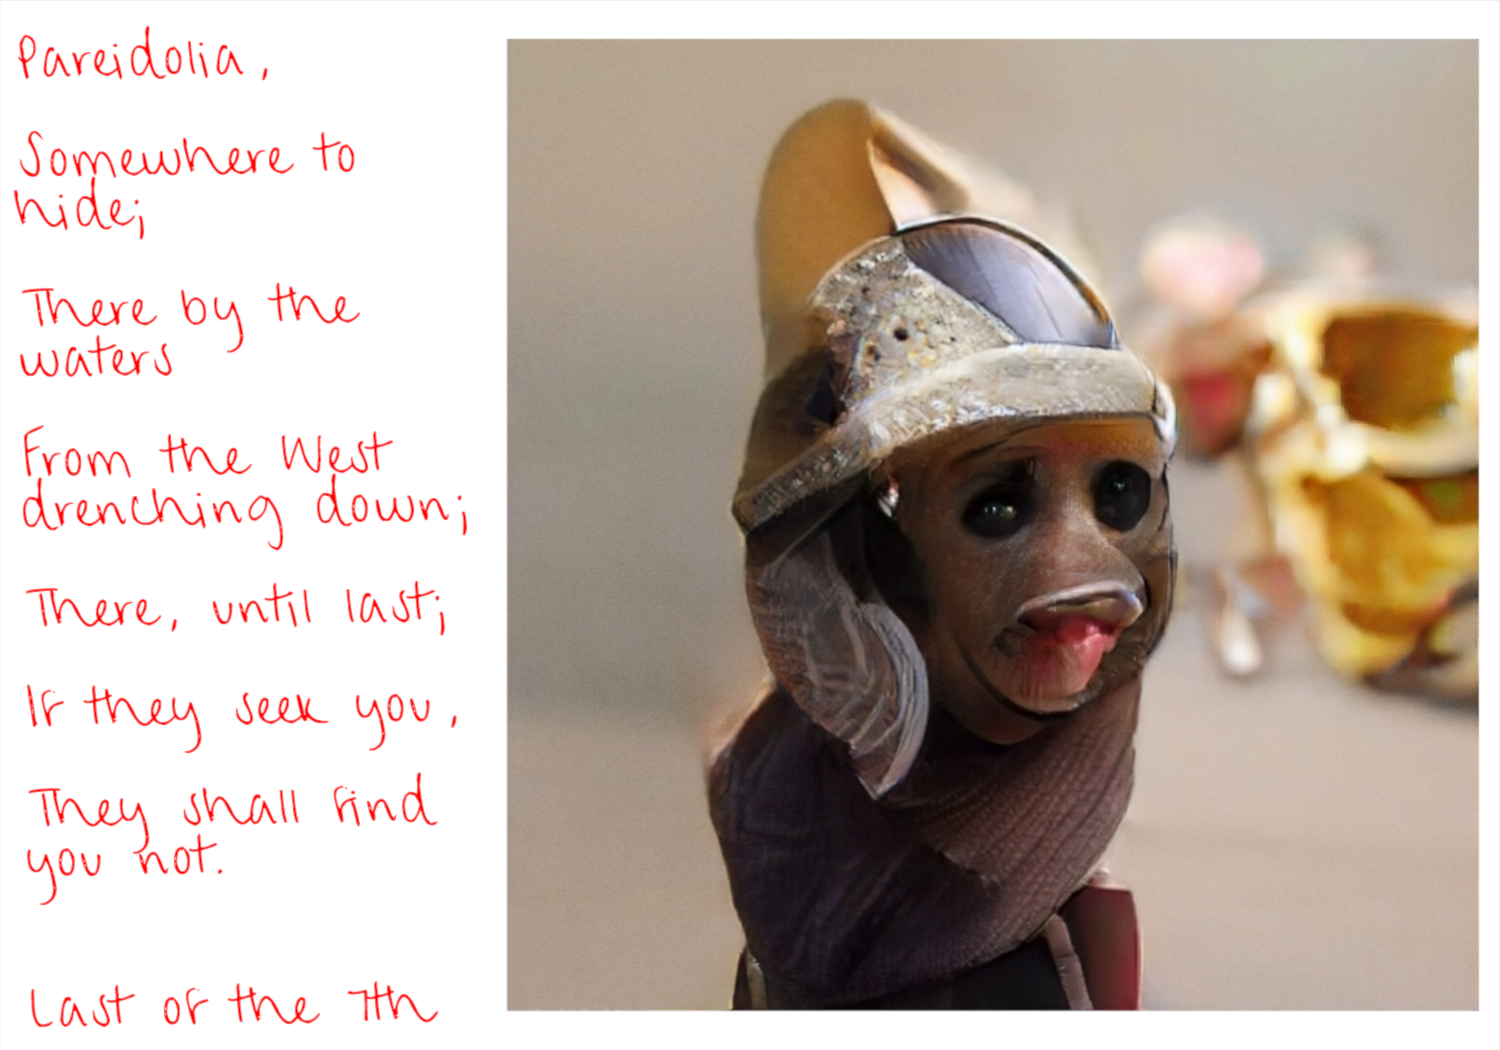 Pareidolia,
Somewhere to
hide;
There by the
waters
From the West
drenching down;
There, until last;
If they seek you,
They shall find
you not.
Last of the 7th